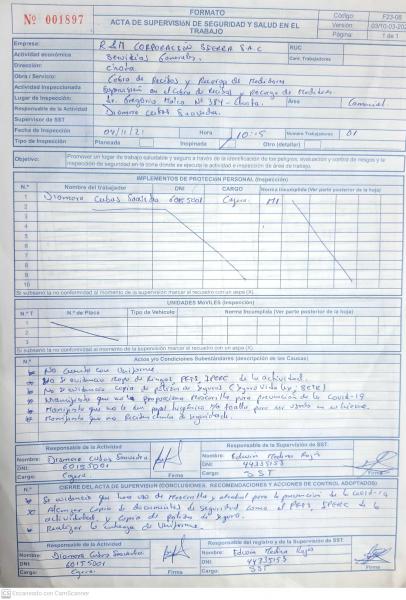 Nº 001897
FORMATO
ACTA DE SUPERVISIÓN DE SEGURIDAD Y SALUD EN EL TRABAJO
Código: F23-05
Versión: 03/10-03-202
Página: 1 de 1
Empresa: R&M CORPORACIÓN SIERRA S.A.C RUC
Actividad económica Servicios Generales. Cant. Trabajadores
Dirección: Chota
Obra / Servicio: Cobro de Recibos y Recarga de Medidores
Actividad Inspeccionada Supervisión en el cobro de Recibos y Recarga de Medidores
Lugar de Inspección: Jr. Gregorio Malca Nº 384 - Chota. Área Comercial
Responsable de la Actividad Diomara Cubas Saavedra.
Supervisor de SST
Fecha de Inspección 04/11/21 Hora 10:15 Número Trabajadores 01
Tipo de Inspección Planeada Inopinada Otro (detallar)
Objetivo: Promover un lugar de trabajo saludable y seguro a través de la identificación de los peligros, evaluación y control de riesgos y la inspección de seguridad en la zona donde se ejecuta la actividad o inspección de área de trabajo.
IMPLEMENTOS DE PROTECIÓN PERSONAL (Inspección)
N.º Nombre del trabajador DNI CARGO Norma Incumplida (Ver parte posterior de la hoja)
1 Diomara Cubas Saavedra 60155001 Cajera. M1
2
3
4
5
6
7
8
9
10
Si subsanó la no conformidad al momento de la supervisión marcar el recuadro con un aspa (X).
UNIDADES MÓVILES (Inspección)
N.º T N.º de Placa Tipo de Vehículo Norma Incumplida (Ver parte posterior de la hoja)
1
2
3
Si subsanó la no conformidad al momento de la supervisión marcar el recuadro con un aspa (X).
N.º Actos y/o Condiciones Subestándares (descripción de las Causas)
No cuenta con Uniforme.
No se evidencia Mapa de Riesgos, PETS, IPERC de la actividad.
No se evidencia copia de pólizas de seguros (Seguro Vida Ley, SCTR)
Manifiesta que no le proporciona Mascarilla para prevención de la Covid-19
Manifiesta que no le dan papel higiénico ni toalla para su uso
Manifiesta que no
Responsable de la Actividad Responsable de la Supervisión de SST:
Nombre: Diomara Cubas Saavedra Nombre: Edwin Medina Rojas
DNI: 60155001 DNI: 44735153
Cargo: Cajera Firma Cargo: SST Firma
CIERRE DEL ACTA DE SUPERVISIÓN (CONCLUSIONES, RECOMENDACIONES Y ACCIONES DE CONTROL ADOPTADOS)
Se evidencia que hace uso de Mascarilla y alcohol para la prevención de la Covid-19
Alcanzar copia de documentos de seguridad como el PETS, IPERC de la
actividad y copia de pólizas de seguro.
Realizar la entrega de Uniforme.
Responsable de la Actividad Responsable del registro y de la Supervisión de SST:
Nombre: Diomara Cubas Saavedra Nombre: Edwin Medina Rojas
DNI: 60155001 DNI: 44735153
Cargo: Cajera. Firma Cargo: SST Firma
CS Escaneado con CamScanner